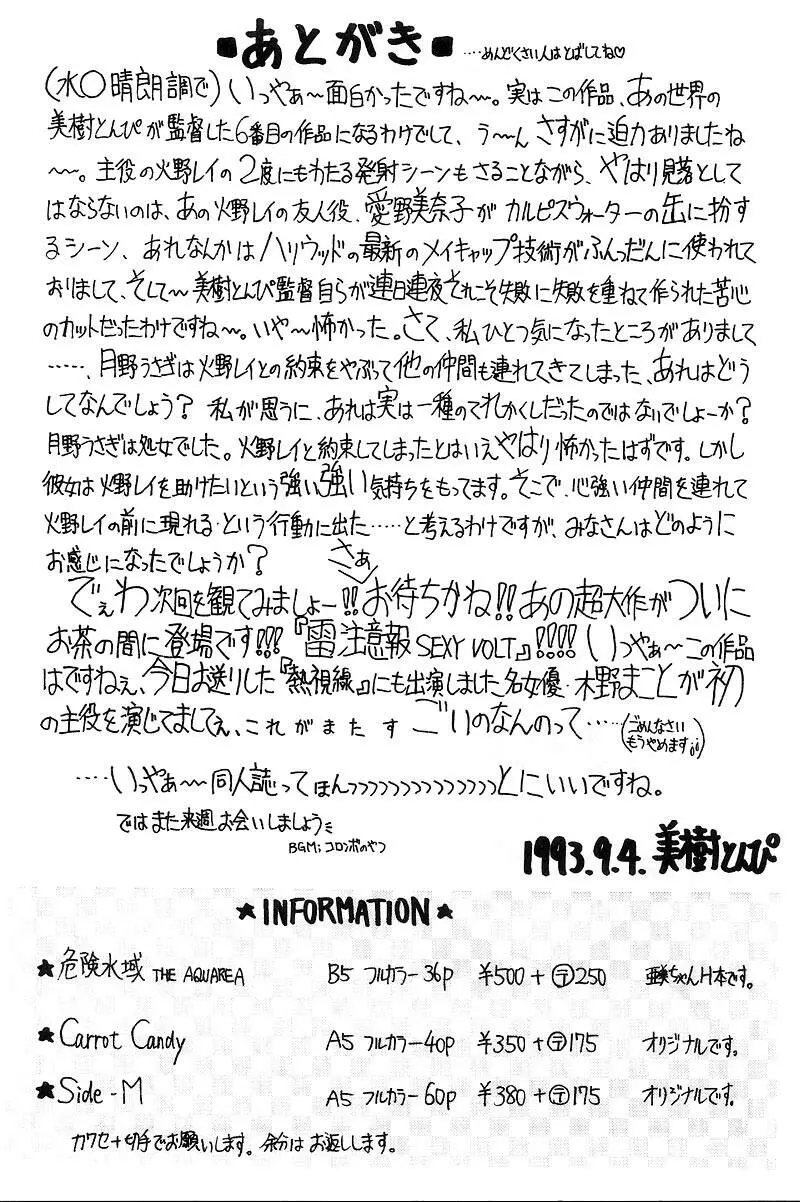 ■あとがき■ ‥‥めんどくさい人はとばしてね♡
(水〇晴朗調で)いっやぁ〜面白かったですね〜。実はこの作品、あの世界の
美樹とんぴが監督した6番目の作品になるわけでして、う〜ん さすがに迫力ありましたね
〜〜。主役の火野レイの2度にもわたる発射シーンもさることながら、やはり見落として
はならないのは、あの火野レイの友人役、愛野美奈子がカルピスウォーターの缶に扮す
るシーン、あれなんかはハリウッドの最新のメイキャップ技術がふんだんに使われて
おりまして、そして〜美樹とんぴ監督自らが連日連夜それこそ失敗に失敗を重ねて作られた苦心
のカットだったわけですね〜。いや〜怖かった。さて、私ひとつ気になったところがありまして
‥‥‥、月野うさぎは火野レイとの約束をやぶって他の仲間も連れてきてしまった、あれはどう
してなんでしょう? 私が思うに、あれは実は一種のてれかくしだったのではないでしょーか?
月野うさぎは処女でした。火野レイと約束してしまったとはいえやはり怖かったはずです。しかし
彼女は火野レイを助けたいという強い、強い気持ちをもってます。そこで、心強い仲間を連れて
火野レイの前に現れる・という行動に出た‥‥‥と考えるわけですが、みなさんはどのように
お感じになったでしょうか?
さぁ
でぇわ次回を観てみましょー!!お待ちかね!!あの超大作がついに
お茶の間に登場です!!!『雷注意報 SEXY VOLT』!!!!いっやぁ〜この作品
はですねぇ、今日お送りした『熱視線』にも出演しました名女優・木野まことが初
の主役を演じてましてぇ、これがまたすごいのなんのって‥‥‥(ごめんなさい
もうやめます;;)
‥‥いっやぁ〜〜同人誌ってほんっっっっっっっっっっっっっっとにいいですね。
ではまた来週お会いしましょう
BGM;コロンボのやつ
1993.9.4. 美樹とんぴ
★INFORMATION★
★危険水域 THE AQUAREA B5 フルカラー36p ¥500+〒250 亜美ちゃんH本です。
★Carrot Candy A5 フルカラー40p ¥350+〒175 オリジナルです。
★Side-M A5 フルカラー60p ¥380+〒175 オリジナルです。
カワセ+切手でお願いします。余分はお返しします。